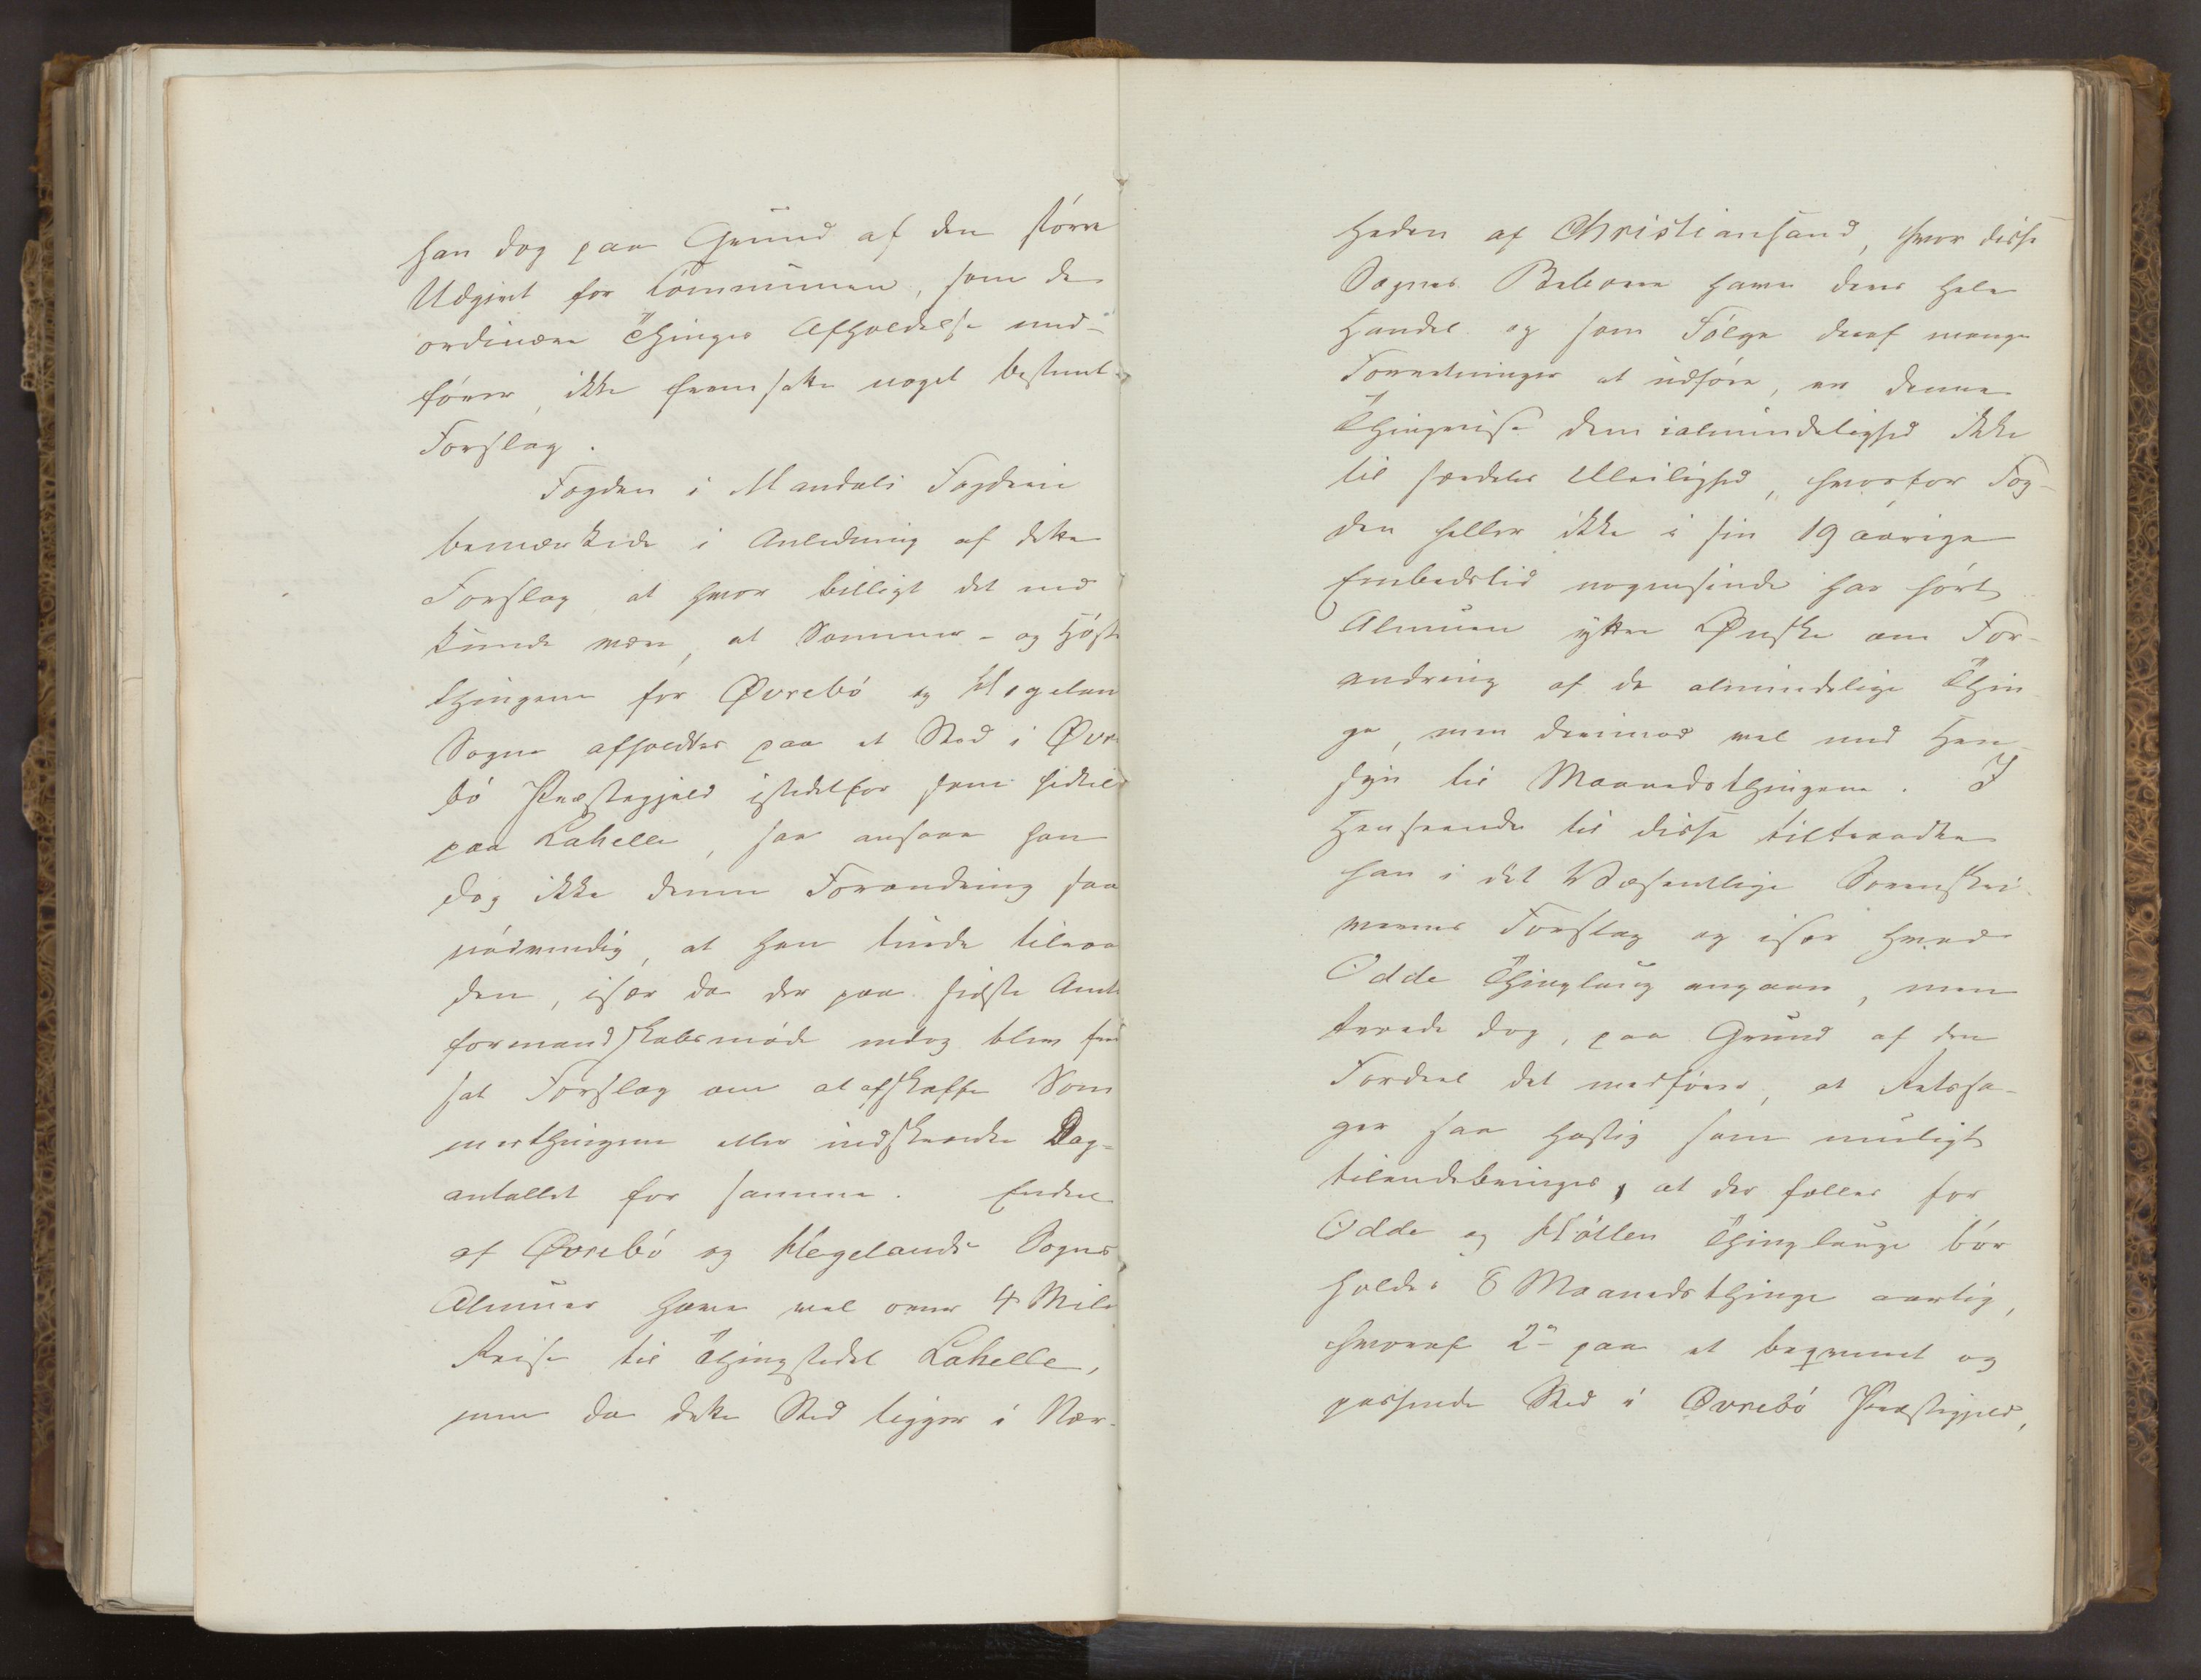 han dog paa Grund af den større
Udgivt for Communen, som de
ordinære Thinges Afholdelse med-
fører, ikke fremsatte noget bestemt
Forslag.
Fogden i Mandals Fogderi
bemærkede i Anledning af dette
Forslag, at hvor billigt det end
kunde være, at Sommer- og Høst
thingene for Øvrebø og Hegelan
Sogne afholdtes paa et Sted i Øvre
bø Præstegjeld istedetfor som hidtil
paa Lahelle, saa ansaae han
dog ikke denne Forandring saa
nødvendig, at han turde tilraa
den, især da der paa sidste Amts
formandskabsmøde endog blev frem
sat Forslag om at afskaffe Som
merthingene eller indskrænke Dag-
antallet for samme. Endeel
af Øvrebø og Hegelands Sognes
Almuer have vel over 4 Mile
Reise til Thingstedet Lahelle,
men da dette Sted ligger i Nær-
heden af Christiansand, hvor disse
Sognes Beboere have deres hele
Handel og som Følge deraf mange
Forretninger at udføre, er denne
Thingreise dem i almindelighed ikke
til særdeles Uleilighed, hvorfor Fog-
den heller ikke i sin 19 aarige
Embedstid nogensinde har hørt
Almuen yttre Ønske om For-
andring af de almindelige Thin
ge, men derimod vel med Hen-
syn til Maanedsthingene. I
Henseende til disse tiltraadte
han i det Væsentlige Sorenskri-
verens Forslag og især hvad
Odde Thinglaug angaaer, men
troede dog, paa Grund af den
Fordeel det medfører, at Retssa-
ger saa hastig som muligt
tilendebringes, at der fælles for
Odde og Høllen Thinglauge bør
holdes 8 Maanedsthinge aarlig,
hvoraf 2 paa et beqvemt og
passende Sted i Øvrebø Præstegjeld,